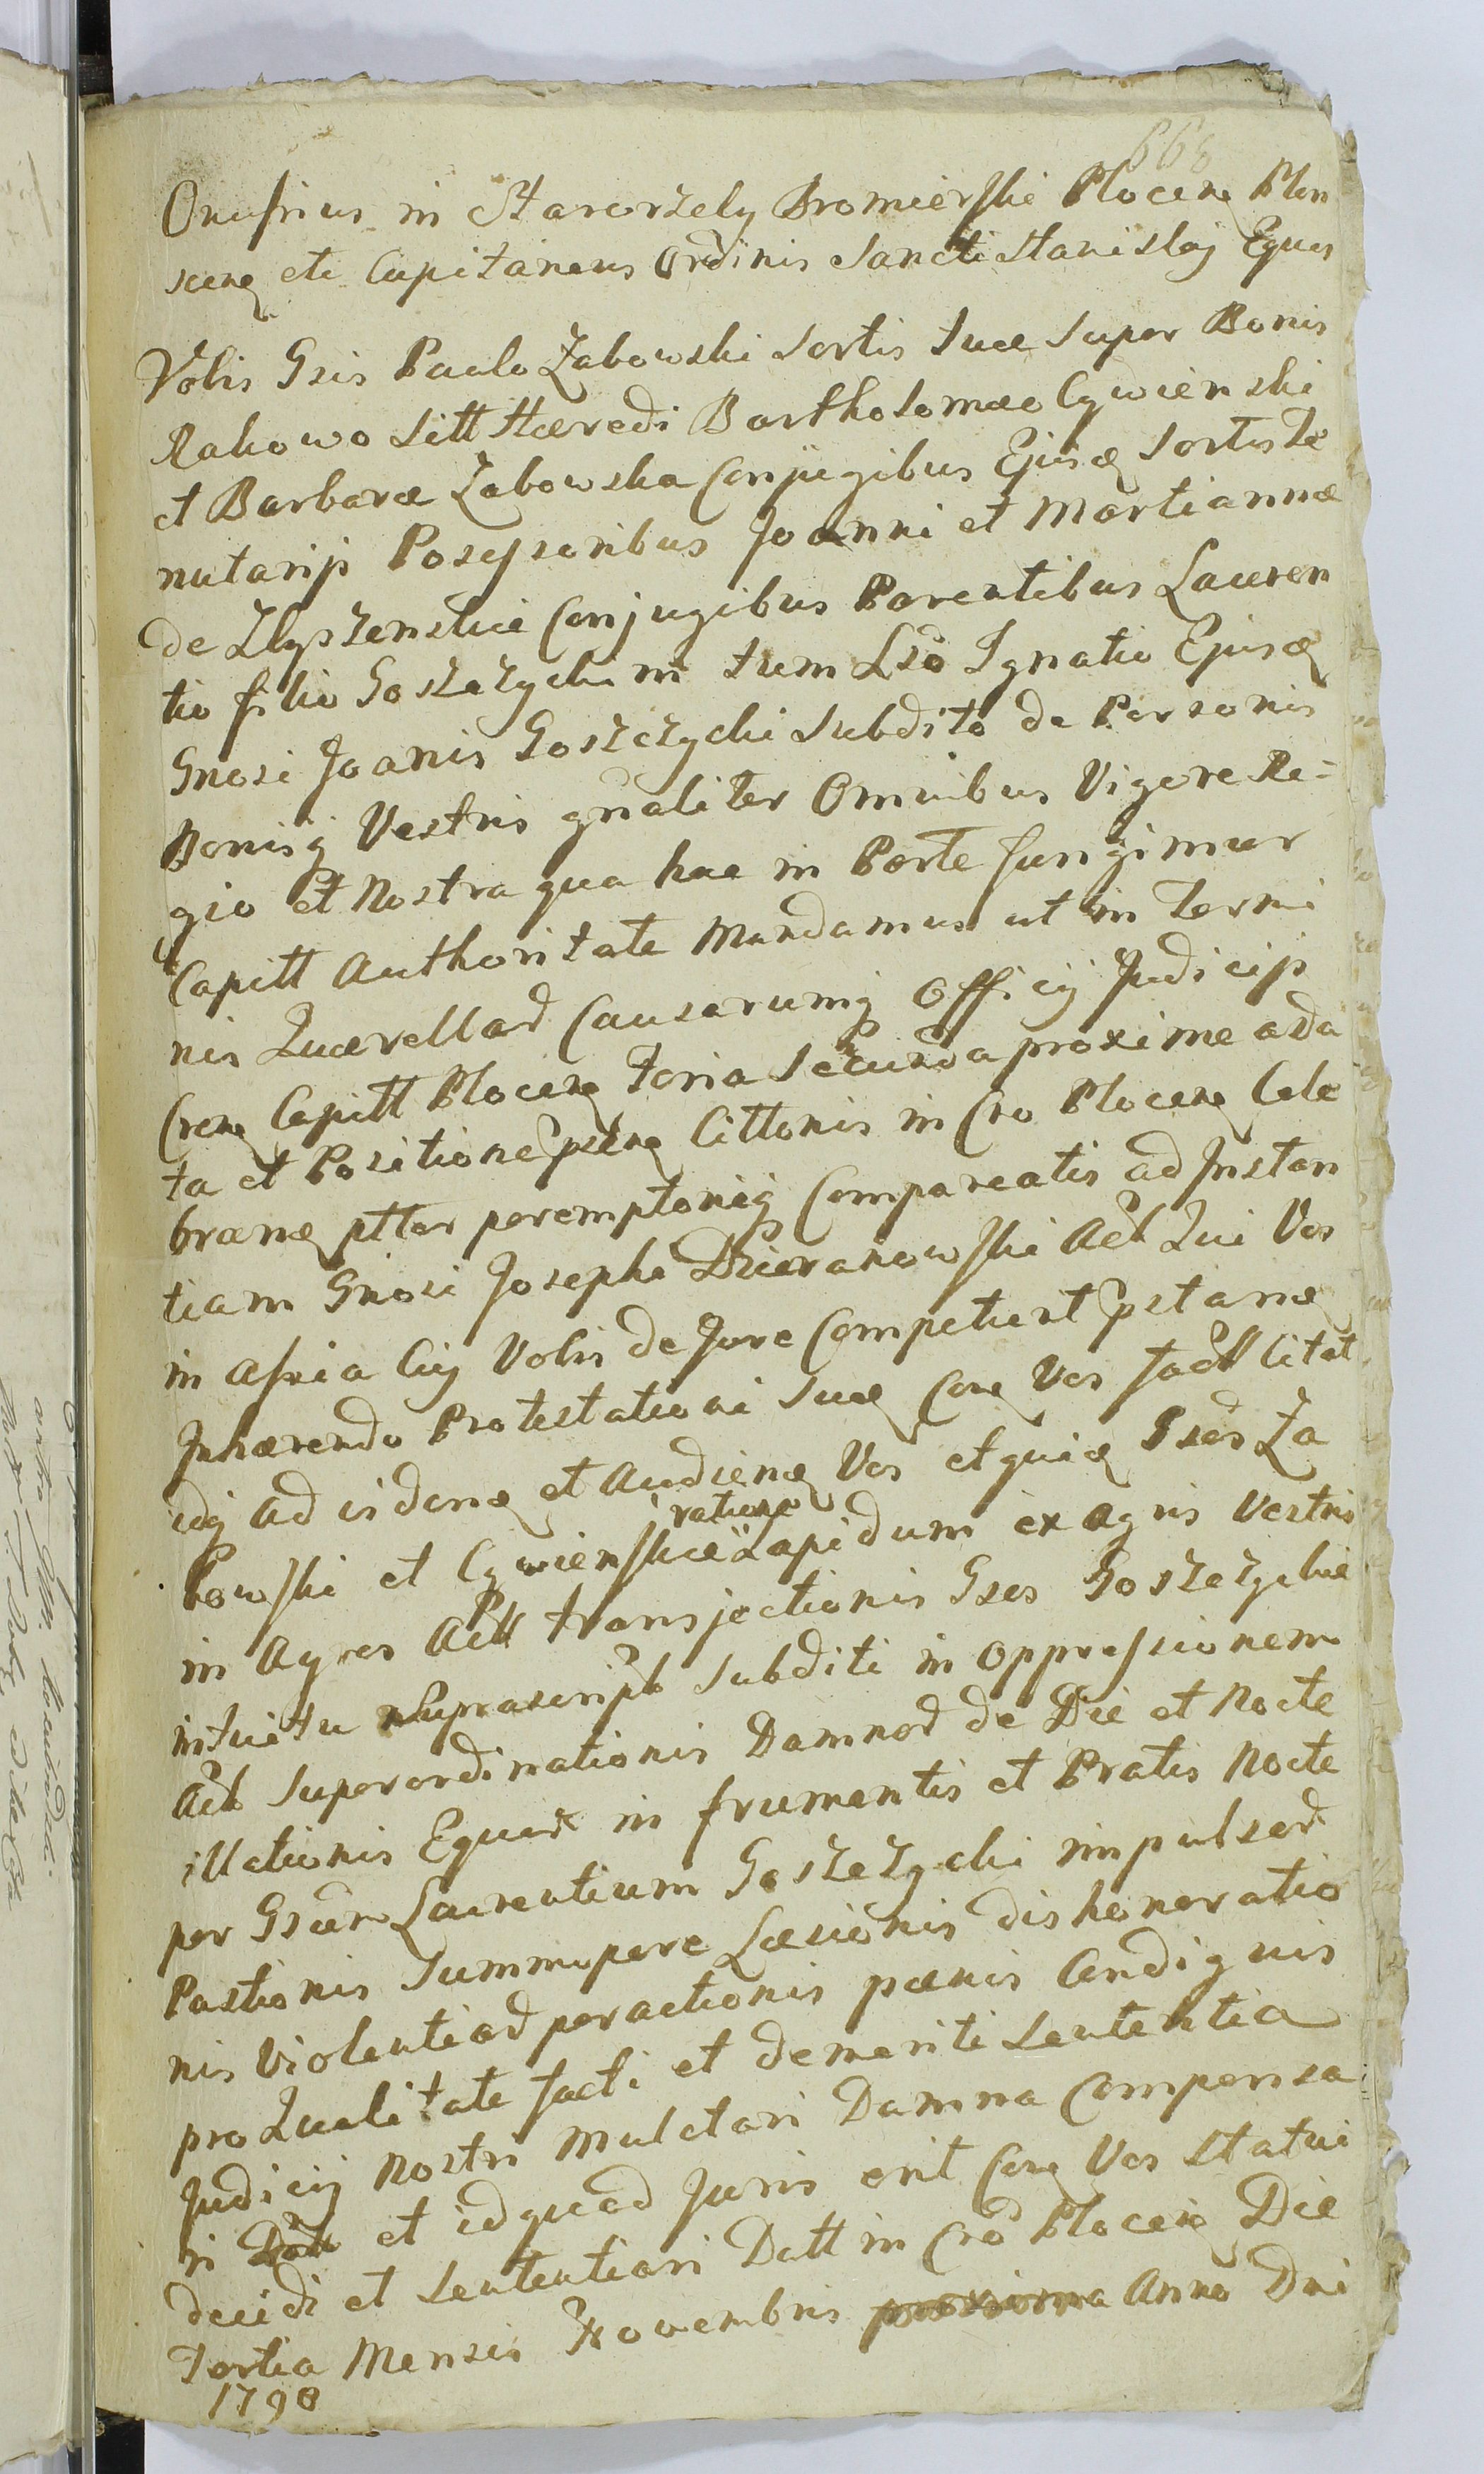 668
Onufrius in Staroržeby Bromierski Plocen Plon
scen etc Capitaneus Ordinis Sancti Stanislaj Eques
Vobis Gsis Paulo Zabowski Sortis Suæ Super Bonis
Rakowo Sitt Hæredi Bartholomæo Cywienski
et Barbaræ Zabowska Conjugibus Ejusd Sortis Te
nutarijs Possessoribus Joanni et Martiannæ
de Zlyszenskie Conjugibus Parentibus Lauren
tio filio Goszczycki ni tum Lso Ignatio Ejusd
Gnosi Joanis Goszczycki Subdito de Personis
Bonisq Vestris gnaliter Omnibus Vigore Re=
gio et Nostra qua hac in Parte fungimur
Capitt Authoritate Mandamus ut in Termi
nis Quærellar Causarumq Officij Judicijs
Cren Capitt Plocen Feria Secunda proxime a da
ta et Positione psen Cittonis in Cro Plocen Cele
bran pttor peremptorieq Compareatis ad Instan
tiam Gnosi Josephi Dzieranowski Act Qui Vos
in assia Cuj Vobis de Jure Competient pstam
Inhærendo Protestationi Suæ Con Vos fact Citat
idq ad viden et Audien Vos etquid Gsos Za
bowski et Cywienskie ratione Lapidum ex Agris Vestris
in Agros Act transjectionis Gsos Goszczyckie
intuitu Suprascript Subditi in Oppressionem
Act Superordinationis Damnor de Die et Nocte
illationis Equor in frumentis et Pratis Nocte
per Gsum Laurentium Goszczycki impulsor
Pastionis Summopere Læsionis dishonoratio
nis Violentiar peractionis pænis Condignis
pro Qualitate facti et demeriti Sententia
Judicij Nostri Mulctari Damna Compensa
ri et idquod Juris erit Con Vos Statui
decidi et Sententiari Datt in Cro Plocen Die
Tertia Mensis Novembris Anno Dni
1790